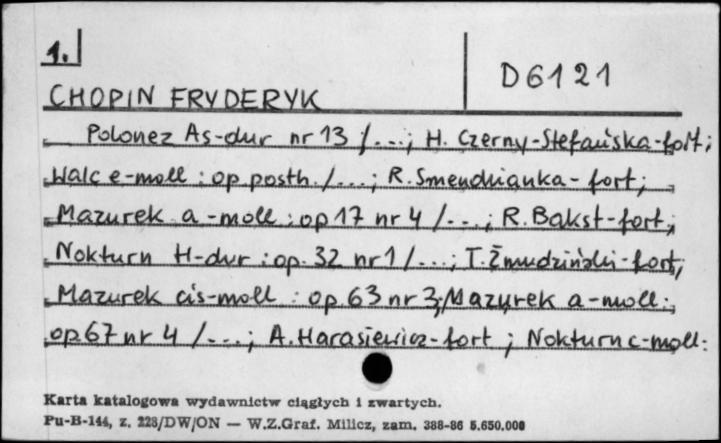 1.
D6121
CHOPIN FRYDERYK
Polonez As-dur nr 13 /...; H. Czerny-Stefańska-fort;
Walc e-moll : op. posth. /...; R. Smendzianka - fort;
Mazurek a-moll : op 17 nr 4 /...; R. Bakst-fort;
Nokturn H-dur : op. 32 nr 1 /...; T. Żmudziński-fort;
Mazurek cis-moll : op. 63 nr 3; Mazurek a-moll :
op. 67 nr 4 /...; A. Harasiewicz-fort ; Nokturn c-moll :
Karta katalogowa wydawnictw ciągłych i zwartych.
Pu-B-144, z. 223/DW/ON — W.Z.Graf. Milicz, zam. 388-86 5.650.000